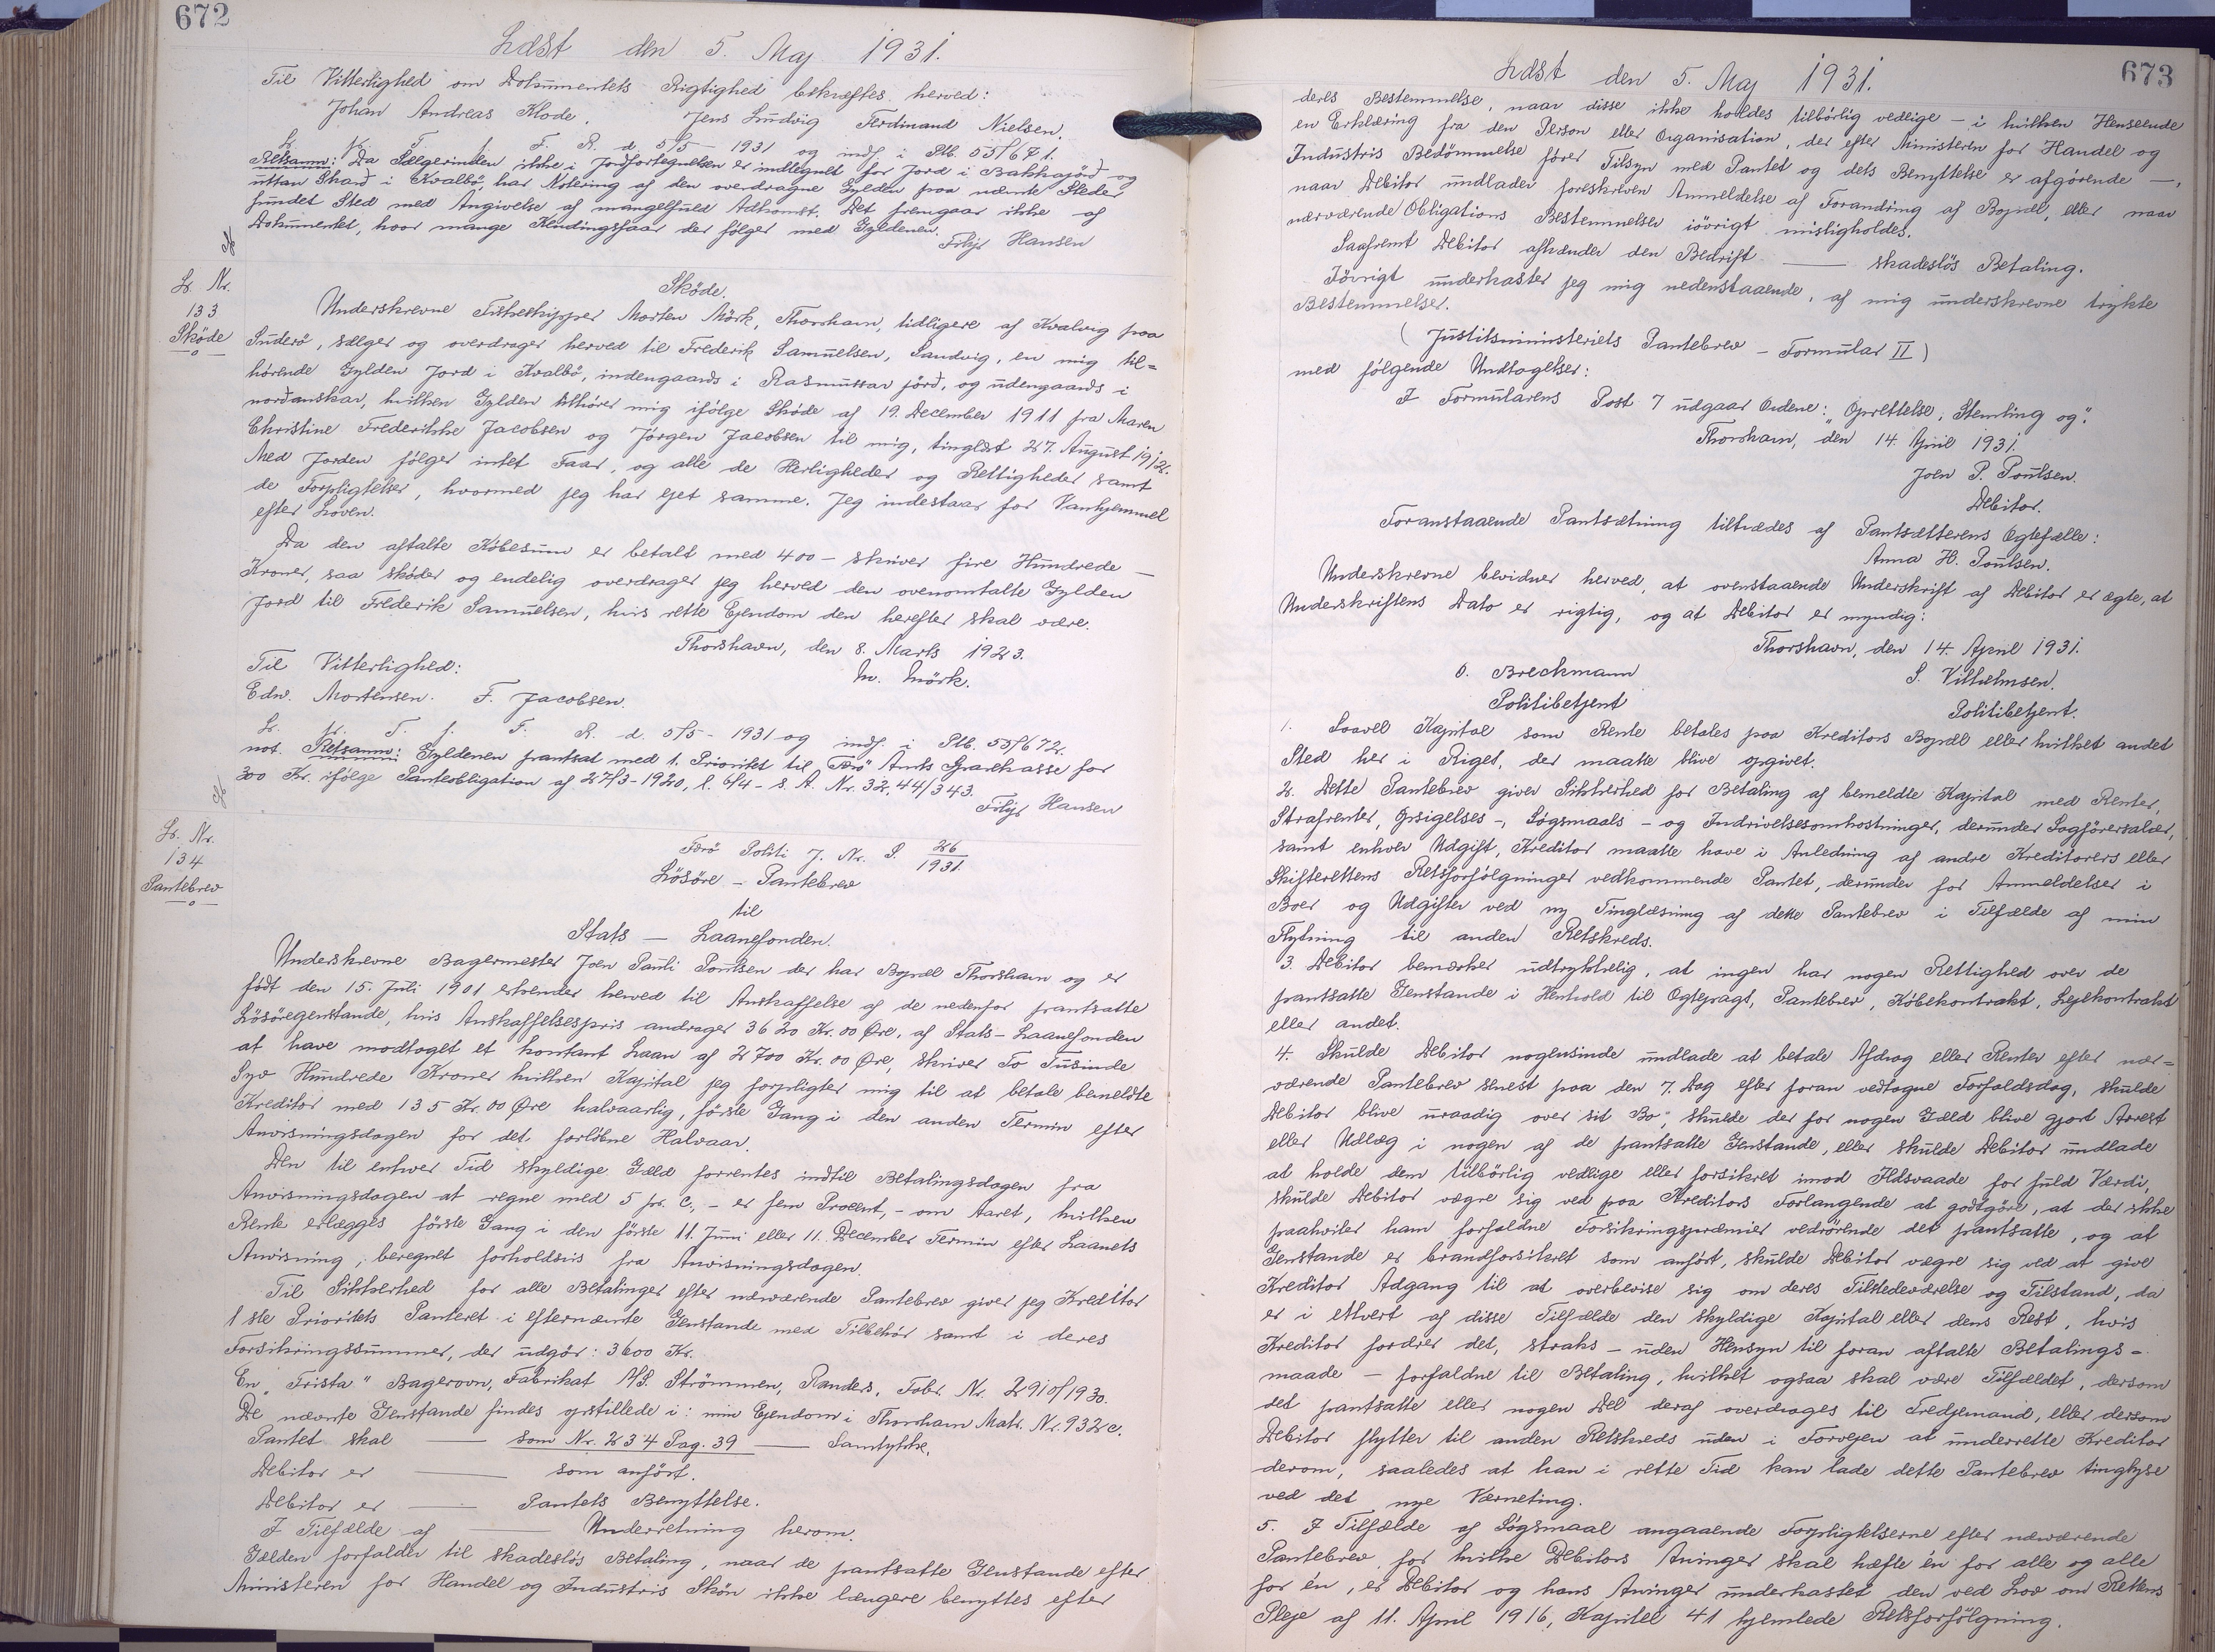 672
Læst den 5. Maj 1931.
Til Vitterlighed om Dokumentets Rigtighed bekræftes herved:
Johan Andreas Klode. Jens Ludvig Ferdinand Nielsen.
L. N. T. f. F. R. d. 5/5 1931 og indf. i Ptb. 55/671.
Retsanm: Da Sælgerinden ikke i Jordfortegnelsen er indtegnet for Jord i Bakkajørð og
uttan Skarð i Kvalbø, har Notering af den overdragne Gylden paa nævnte Steder
fundet Sted med Angivelse af mangelfuld Adkomst. Det fremgaar ikke af
Dokumentet, hvor mange Kludingsfaar der følger med Gyldenen.
Filip Hansen
Lb. Nr.
133
Skøde
Skøde.
Underskrevne Fiskeskipper Morten Mørk, Thorshavn, tidligere af Kvalvig paa
Suderø, sælger og overdrager herved til Frederik Samuelsen, Sandvig, en mig til=
hørende Gylden Jord i Kvalbø, indengaards i Rasmussar jørð, og udengaards i
norðanskar, hvilken Gylden tilhører mig ifølge Skøde af 19. December 1911 fra Maren
Christine Frederikke Jacobsen og Jørgen Jacobsen til mig, tinglæst 27. August 1912.
Med Jorden følger intet Faar, og alle de Herligheder og Rettigheder samt
de Forpligtelser, hvormed jeg har ejet samme. Jeg indestaar for Vanhjemmel
efter Loven.
Da den aftalte Købesum er betalt med 400 – skriver fire Hundrede –
Kroner, saa skøder og endelig overdrager jeg herved den ovenomtalte Gylden
Jord til Frederik Samuelsen, hvis rette Ejendom den herefter skal være.
Thorshavn, den 8. Marts 1923.
Til Vitterlighed: M. Mørk.
Edw. Mortensen. F. Jacobsen.
L. N. T. f. F. R. d. 5/5 - 1931 og indf. i Ptb. 55/672.
not. Retsanm: Gyldenen pantsat med 1. Prioritet til Færø Amts Sparekasse for
300 Kr. ifølge Panteobligation af 27/3-1920, l. 6/4 - s. A. Nr. 32, 44/343.
Filip Hansen
Lb. Nr.
134
Pantebrev
Færø Politi J. Nr. P. 26/1931.
Løsøre – Pantebrev
til
Stats – Laanefonden.
Underskrevne Bagermester Joen Pauli Poulsen der har Bopæl Thorshavn og er
født den 15. Juli 1901 erkender herved til Anskaffelse af de nedenfor pantsatte
Løsøregenstande, hvis Anskaffelsespris andrager 3620 Kr. 00 Øre, af Stats-Laanefonden
at have modtaget et kontant Laan af 2700 Kr. 00 Øre, skriver To Tusinde
Syv Hundrede Kroner hvilken Kapital jeg forpligter mig til at betale bemeldte
Kreditor med 135 Kr. 00 Øre halvaarlig, første Gang i den anden Termin efter
Anvisningsdagen for det forløbne Halvaar.
Den til enhver Tid skyldige Gæld forrentes indtil Betalingsdagen fra
Anvisningsdagen at regne med 5 pr. C., – er fem Procent, – om Aaret, hvilken
Rente erlægges første Gang i den første 11. Juni eller 11. December Termin efter Laanets
Anvisning, beregnet forholdsvis fra Anvisningsdagen.
Til Sikkerhed for alle Betalinger efter nærværende Pantebrev giver jeg Kreditor
1 ste Prioritets Panteret i efternævnte Genstande med Tilbehør samt i deres
Forsikringssummer, der udgør: 3600 Kr.
En "Trista" Bagerovn, Fabrikat A/S. Strømmen, Randers, Fabr. Nr. 2910/1930.
De nævnte Genstande findes opstillede i: min Ejendom i Thorshavn Matr. Nr. 932 c.
Pantet skal — som Nr. 234 Pag. 39 — Samtykke.
Debitor er — som anført.
Debitor er — Pantets Benyttelse.
I Tilfælde af — Underretning herom.
Gælden forfalder til skadesløs Betaling, naar de pantsatte Genstande efter
Ministeren for Handel og Industris Skøn ikke længere benyttes efter
673
Læst den 5. Maj 1931.
deres Bestemmelse, naar disse ikke holdes tilbørlig vedlige – i hvilken Henseende
en Erklæring fra den Person eller Organisation, der efter Ministeren for Handel og
Industris Bedømmelse fører Tilsyn med Pantet og dets Benyttelse er afgørende –,
naar Debitor undlader foreskreven Anmeldelse af Forandring af Bopæl, eller naar
nærværende Obligations Bestemmelser iøvrigt misligholdes.
Saafremt Debitor afhænder den Bedrift — skadesløs Betaling.
Iøvrigt underkaster jeg mig nedenstaaende, af mig underskrevne trykte
Bestemmelser.
(Justitsministeriets Pantebrev – Formular II)
med følgende Undtagelser:
I Formularens Post 7 udgaar Ordene: "Oprettelse, Stempling og".
Thorshavn, den 14. April 1931.
Joen P. Poulsen.
Debitor.
Foranstaaende Pantsætning tiltrædes af Pantsætterens Ægtefælle:
Anna H. Poulsen.
Underskrevne bevidner herved, at ovenstaaende Underskrift af Debitor er ægte, at
Underskriftens Dato er rigtig, og at Debitor er myndig:
Thorshavn, den 14. April 1931.
O. Breckmann S. Vilhelmsen.
Politibetjent Politibetjent.
1. Saavel Kapital som Rente betales paa Kreditors Bopæl eller hvilket andet
Sted her i Riget, der maatte blive opgivet.
2. Dette Pantebrev giver Sikkerhed for Betaling af bemeldte Kapital med Renter,
Strafrenter, Opsigelses-, Søgsmaals- og Inddrivelsesomkostninger, derunder Sagførersalær,
samt enhver Udgift, Kreditor maatte have i Anledning af andre Kreditorers eller
Skifterettens Retsforfølgninger vedkommende Pantet, derunder for Anmeldelser i
Boer og Udgifter ved ny Tinglæsning af dette Pantebrev i Tilfælde af min
Flytning til anden Retskreds.
3. Debitor bemærker udtrykkelig, at ingen har nogen Rettighed over de
pantsatte Genstande i Henhold til Ægtepagt, Pantebrev, Købekontrakt, Lejekontrakt
eller andet.
4. Skulde Debitor nogensinde undlade at betale Afdrag eller Renter efter nær=
værende Pantebrev senest paa den 7. Dag efter foran vedtagne Forfaldsdag, skulde
Debitor blive uraadig over sit Bo, skulde der for nogen Gæld blive gjort Arrest
eller Udlæg i nogen af de pantsatte Genstande, eller skulde Debitor undlade
at holde dem tilbørlig vedlige eller forsikret imod Ildsvaade for fuld Værdi,
skulde Debitor vægre sig ved paa Kreditors Forlangende at godtgøre, at der ikke
paahviler ham forfaldne Forsikringspræmier vedrørende det pantsatte, og at
Genstande er brandforsikret som anført, skulde Debitor vægre sig ved at give
Kreditor Adgang til at overbevise sig om deres Tilstedeværelse og Tilstand, da
er i ethvert af disse Tilfælde den skyldige Kapital eller dens Rest, hvis
Kreditor fordrer det, straks – uden Hensyn til foran aftalte Betalings-
maade – forfaldne til Betaling, hvilket ogsaa skal være Tilfældet, dersom
det pantsatte eller nogen Del deraf overdrages til Tredjemand, eller dersom
Debitor flytter til anden Retskreds uden i Forvejen at underrette Kreditor
derom, saaledes at han i rette Tid kan lade dette Pantebrev tinglyse
ved det nye Værneting.
5. I Tilfælde af Søgsmaal angaaende Forpligtelserne efter nærværende
Pantebrev, for hvilke Debitors Arvinger skal hæfte én for alle og alle
for én, er Debitor og hans Arvinger underkastet den ved Lov om Rettens
Pleje af 11. April 1916, Kapitel 41 hjemlede Retsforfølgning.